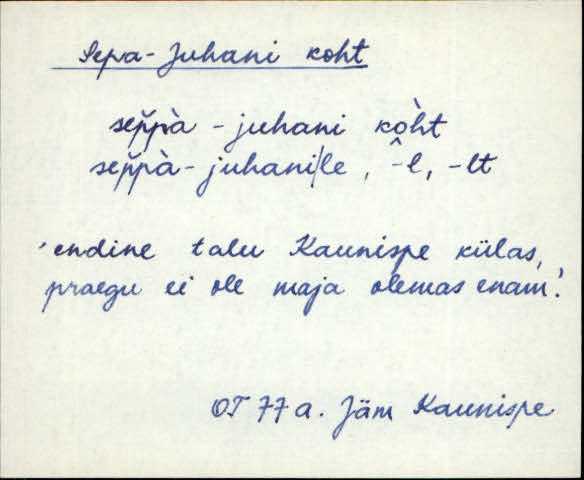 Sepa-Juhani koht
sep̆p̆à - juhani kòht
sep̆p̆à - juhani|le, -̂l, -lt
'endine talu Kaunispe külas,
praegu ei ole maja olemas enam.'
OT 77 a. Jäm Kaunispe